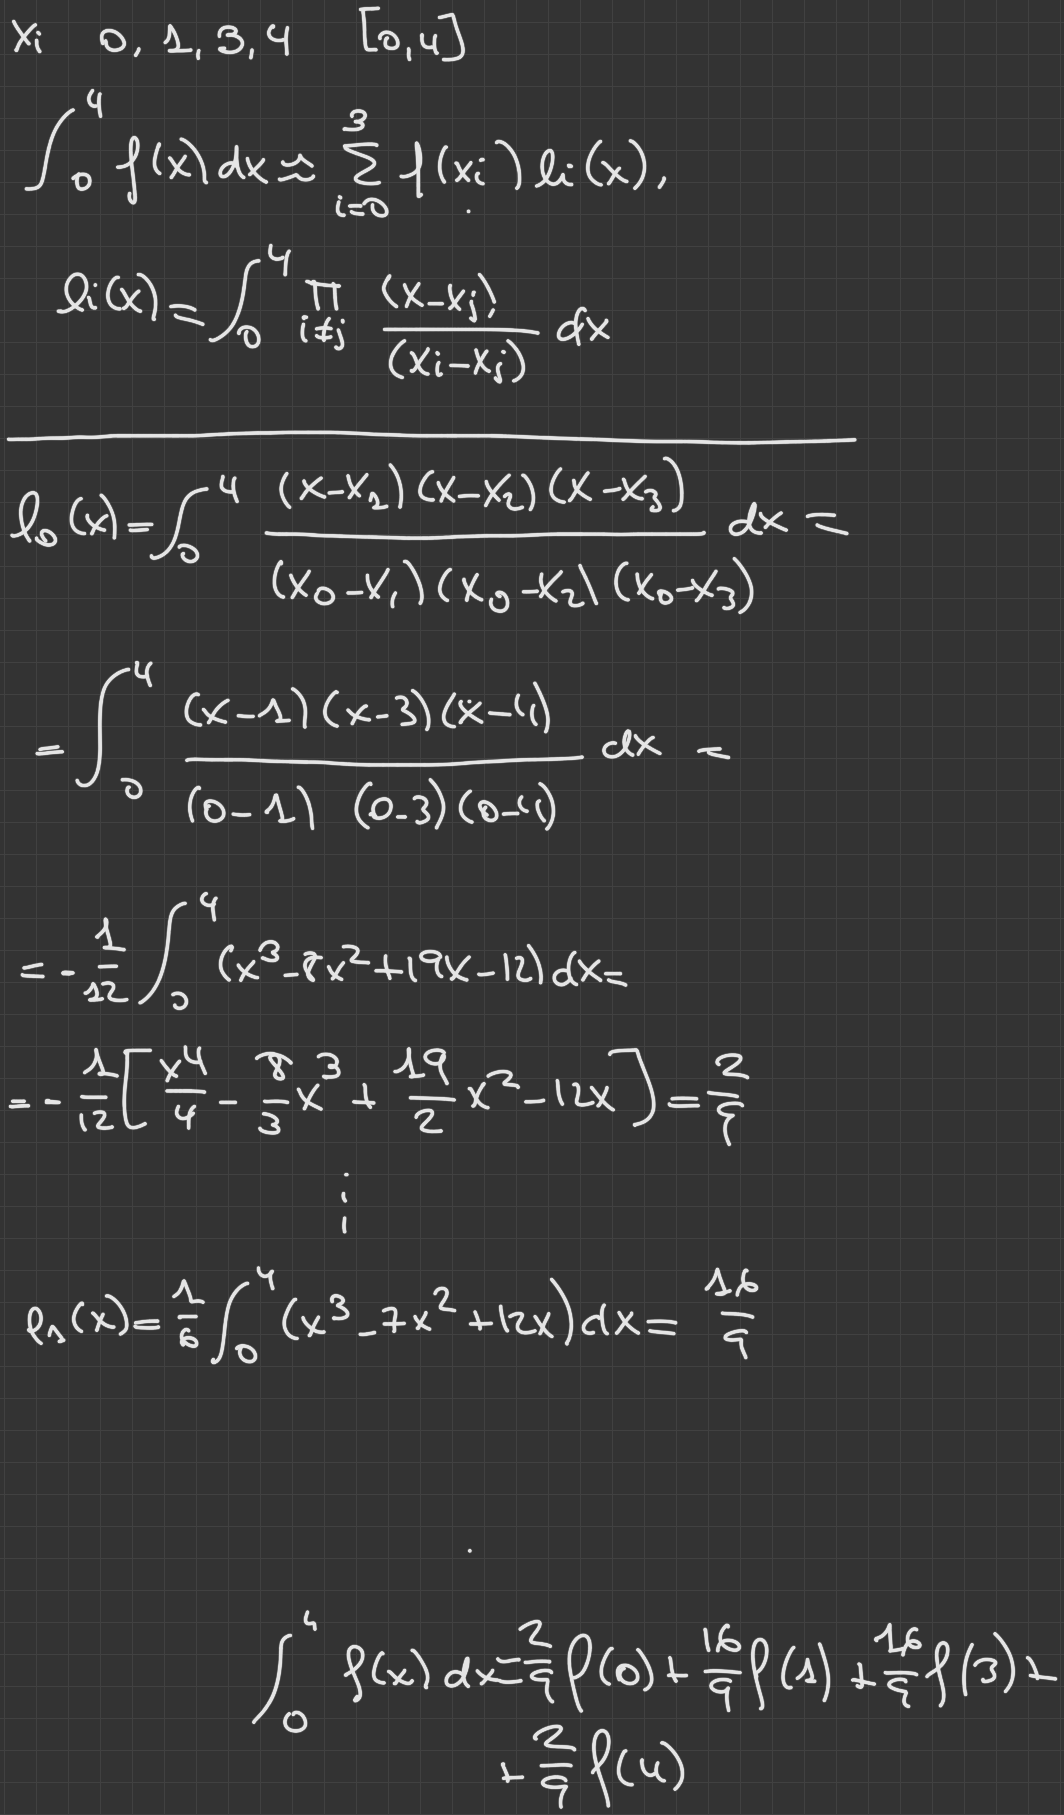 xi 0, 1, 3, 4 [0,4]
∫₀⁴ f(x) dx ≈ ∑_{i=0}^{3} f(xi) li(x),
li(x) = ∫₀⁴ ∏_{i≠j} (x-xj)/(xi-xj) dx
l₀(x) = ∫₀⁴ (x-x₁)(x-x₂)(x-x₃)/(x₀-x₁)(x₀-x₂)(x₀-x₃) dx =
= ∫₀⁴ (x-1)(x-3)(x-4)/(0-1)(0-3)(0-4) dx =
= -1/12 ∫₀⁴ (x³-8x²+19x-12)dx=
= -1/12 [x⁴/4 - 8/3 x³ + 19/2 x² - 12x] = 2/9
⋮
l₁(x) = 1/6 ∫₀⁴ (x³-7x²+12x)dx = 16/9
∫₀⁴ f(x) dx = 2/9 f(0) + 16/9 f(1) + 16/9 f(3) +
+ 2/9 f(4)